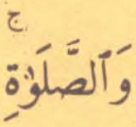 ۚ
وَٱلصَّلَوٰةِ